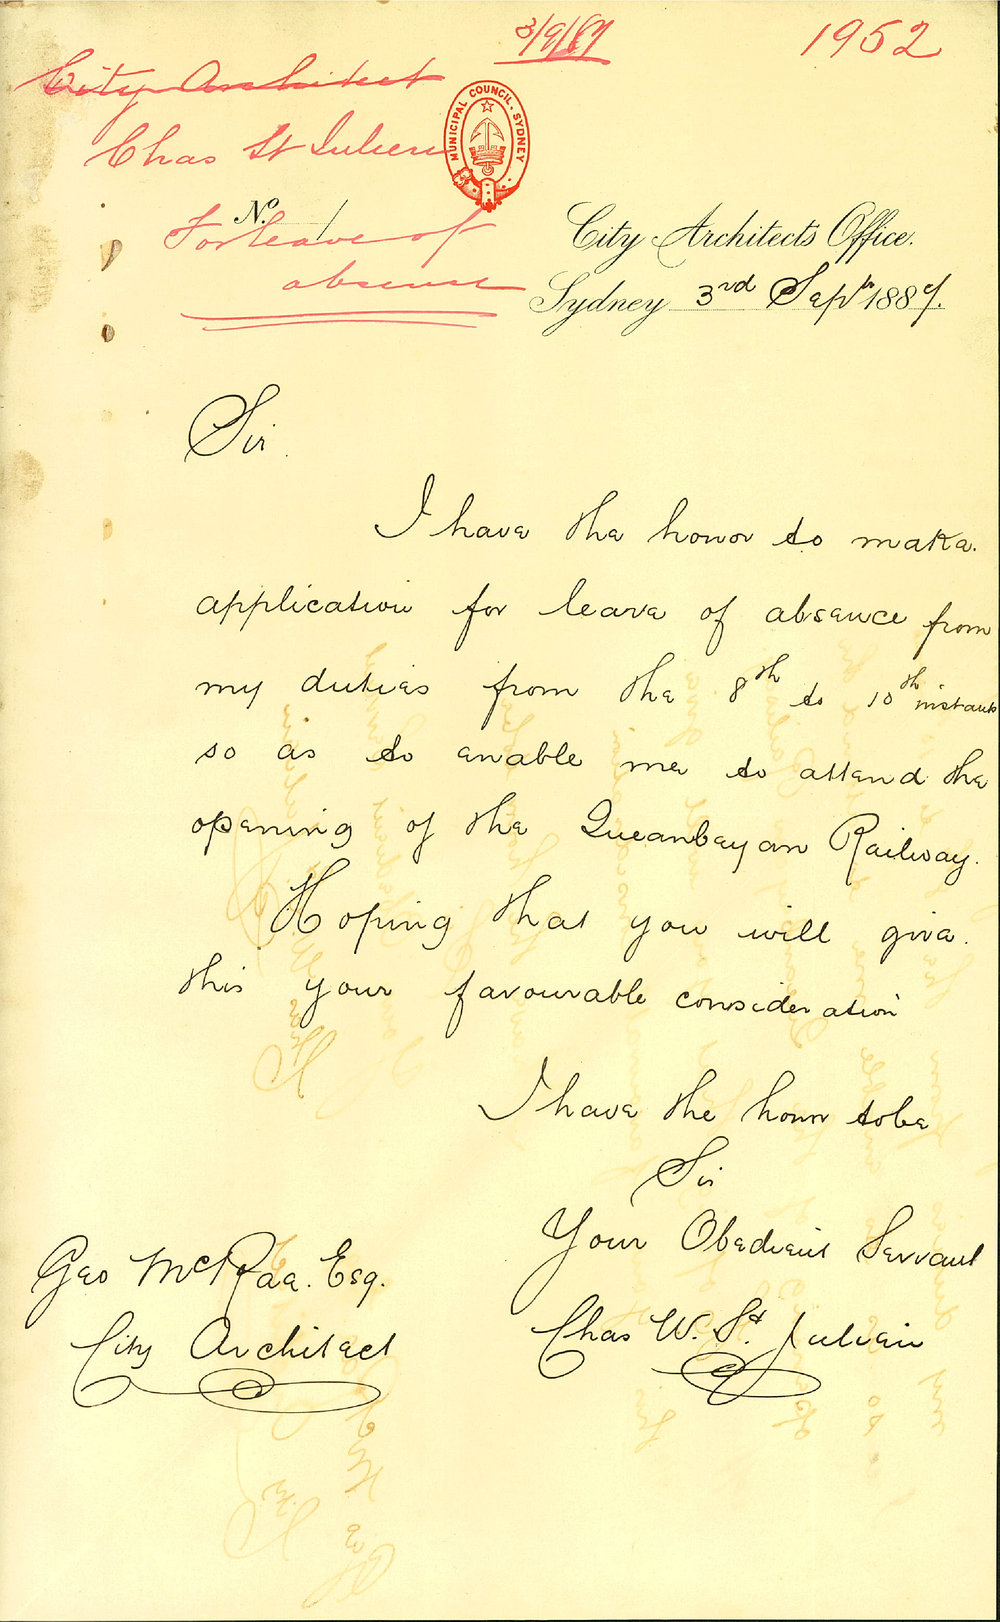 3/9/87
1952
City Architect
Chas St Julien
MUNICIPAL COUNCIL. SYDNEY
No. 1
For leave of
absence
City Architects Office.
Sydney 3rd Sepr 1887.
Sir.
I have the honor to make
application for leave of absence from
my duties from the 8th to 10th instant
so as to enable me to attend the
opening of the Queanbeyan Railway.
Hoping that you will give
this your favourable consideration
I have the honor to be
Sir
Your Obedient Servant
Geo McRae. Esq.
Chas W. St. Julien
City Architect